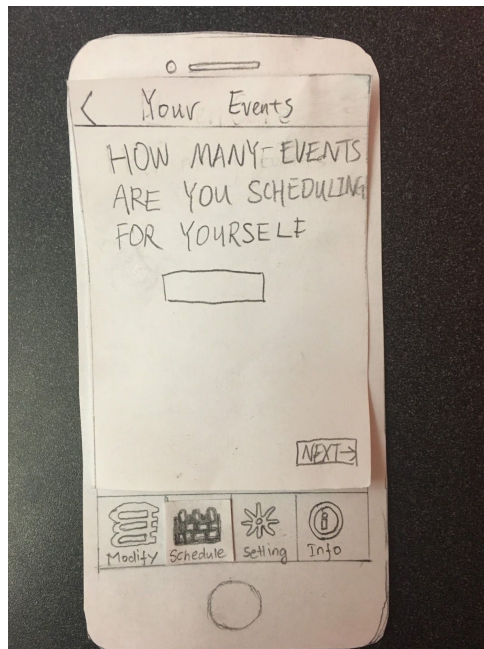 < Your Events
HOW MANY EVENTS
ARE YOU SCHEDULING
FOR YOURSELF
NEXT→
Modify Schedule Setting Info